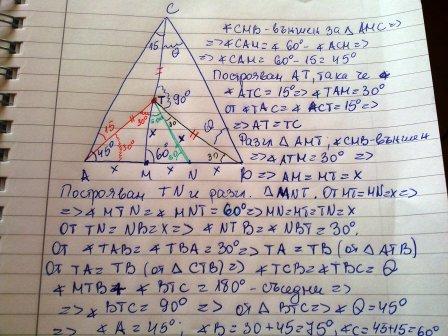 C
15
Q
T
90°
30°
15
45°
30°
60°
60
30
Q
A
x
M
x
N
x
∢CMB - външен за △AMC =>
=> ∢CAM = ∢60° - ∢ACM =>
=> ∢CAM = 60° - 15 = 45°
Построявам AT, така че
∢ATC = 15° => ∢TAM = 30°
от ∢TAC = ∢ACT = 15° =>
=> AT = TC
Разгл △AMT; ∢CMB - външен
=> ∢ATM = 30° =>
=> AM = MT = x
Построявам TN и разгл. △MNT. От MT = MN = x =>
=> ∢MTN = ∢MNT = 60° => MN = MT = TN = x
От TN = NB = x => ∢NTB = ∢NBT = 30°
От ∢TAB = ∢TBA = 30° => TA = TB (от △ATB)
От TA = TB (от △CTB) => ∢TCB = ∢TBC = Q
∢MTB + ∢BTC = 180° - съседни =>
=> ∢BTC = 90° => от △BTC => ∢Q = 45°
=> ∢A = 45°; ∢B = 30 + 45 = 75°, ∢C = 45 + 15 = 60°